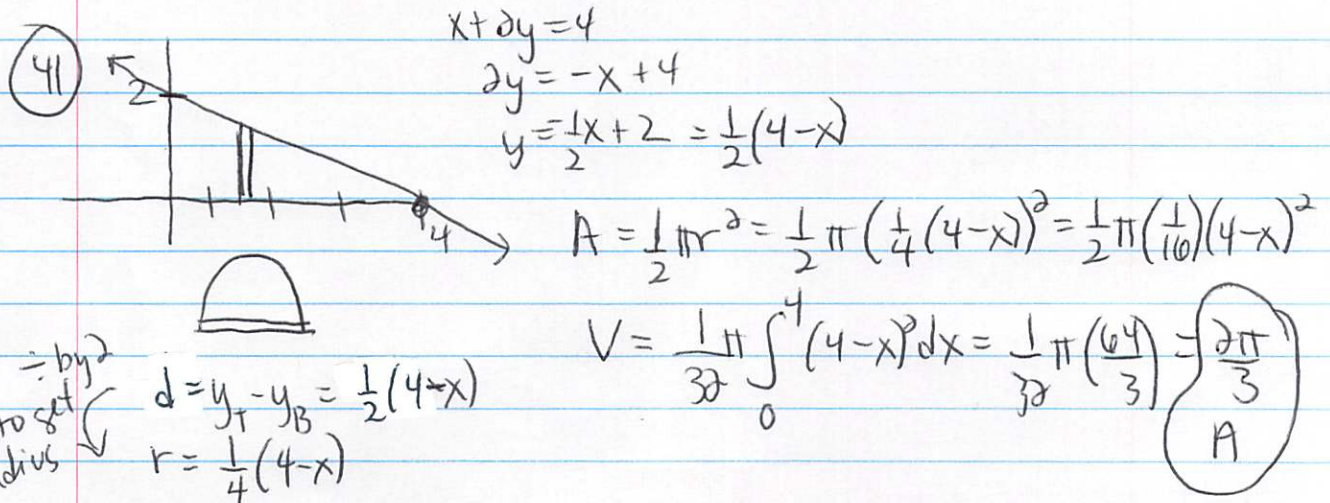 41
x+2y=4
2y = -x+4
y = -1/2 x+2 = 1/2(4-x)
2
4
A = 1/2 πr² = 1/2 π(1/4(4-x))² = 1/2 π(1/16)(4-x)²
V = 1/32 π ∫₀⁴ (4-x)² dx = 1/32 π(64/3) = 2π/3
A
÷ by 2
to get
d = y_T - y_B = 1/2(4-x)
r = 1/4(4-x)